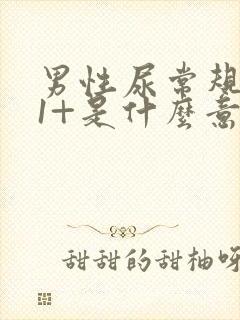 男性尿常规
1+是什麽意
甜甜的甜柚呀